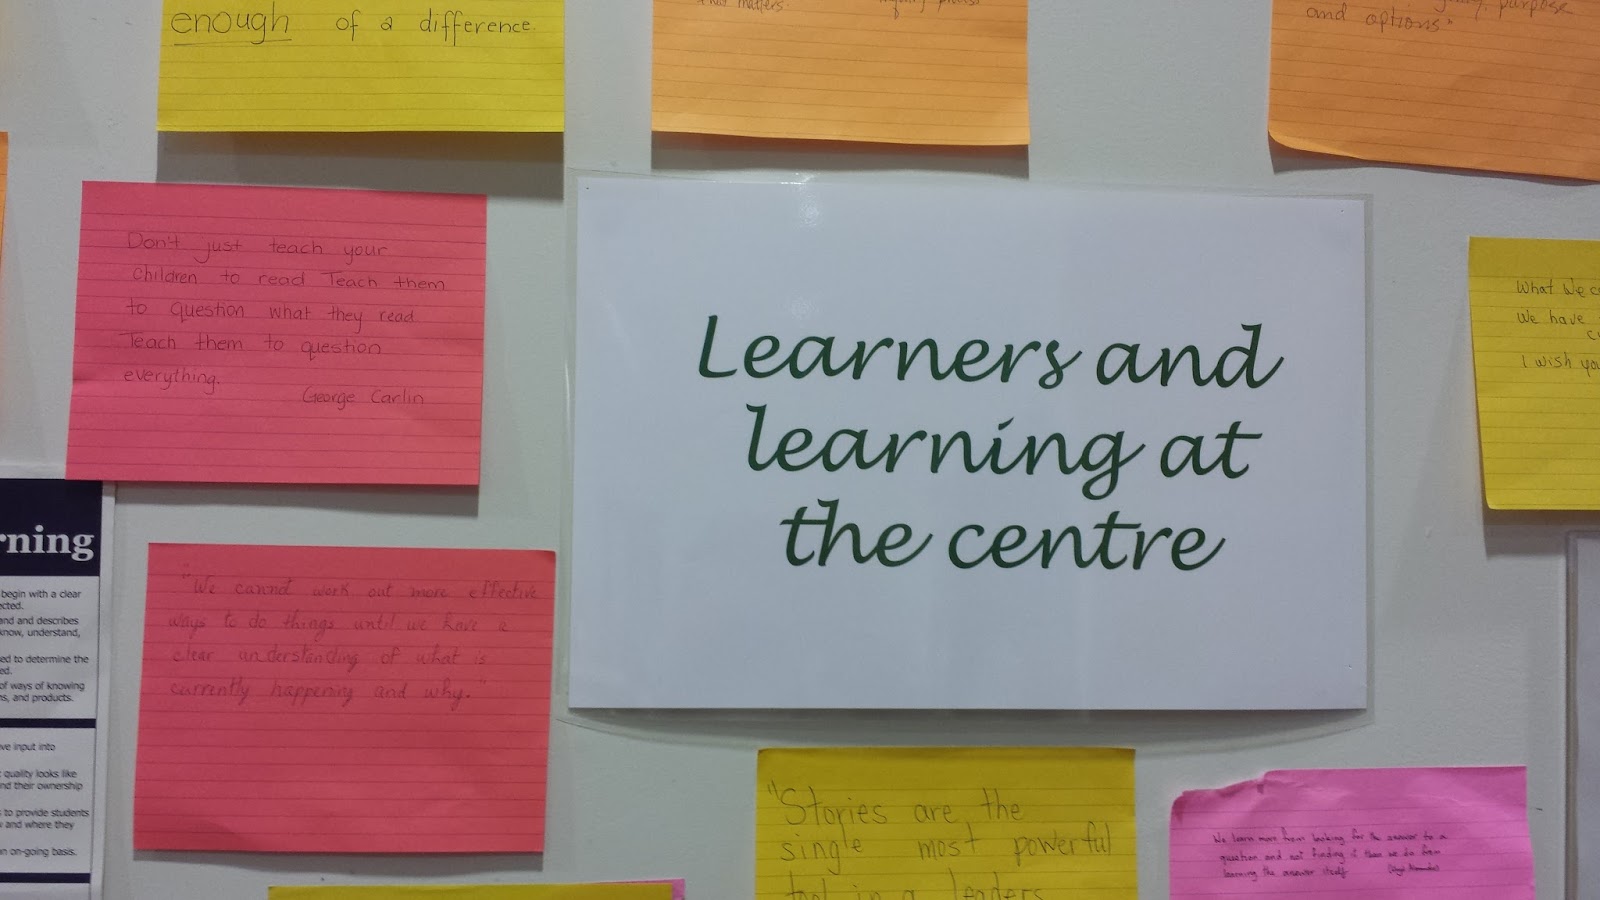 enough of a difference.
that matters.
purpose
and options"
Don't just teach your
children to read Teach them
to question what they read
Teach them to question
everything.
George Carlin
Learners and
learning at
the centre
What We c
We have
I wish you
rning
begin with a clear
ected.
and and describes
know, understand,
ed to determine the
ed.
of ways of knowing
ns, and products.
ve input into
quality looks like
nd their ownership
to provide students
and where they
n on-going basis.
"We cannot work out more effective
ways to do things until we have a
clear understanding of what is
currently happening and why."
"Stories are the
single most powerful
tool in a leaders
We learn more from looking for the answer to a
question and not finding it than we do from
learning the answer itself